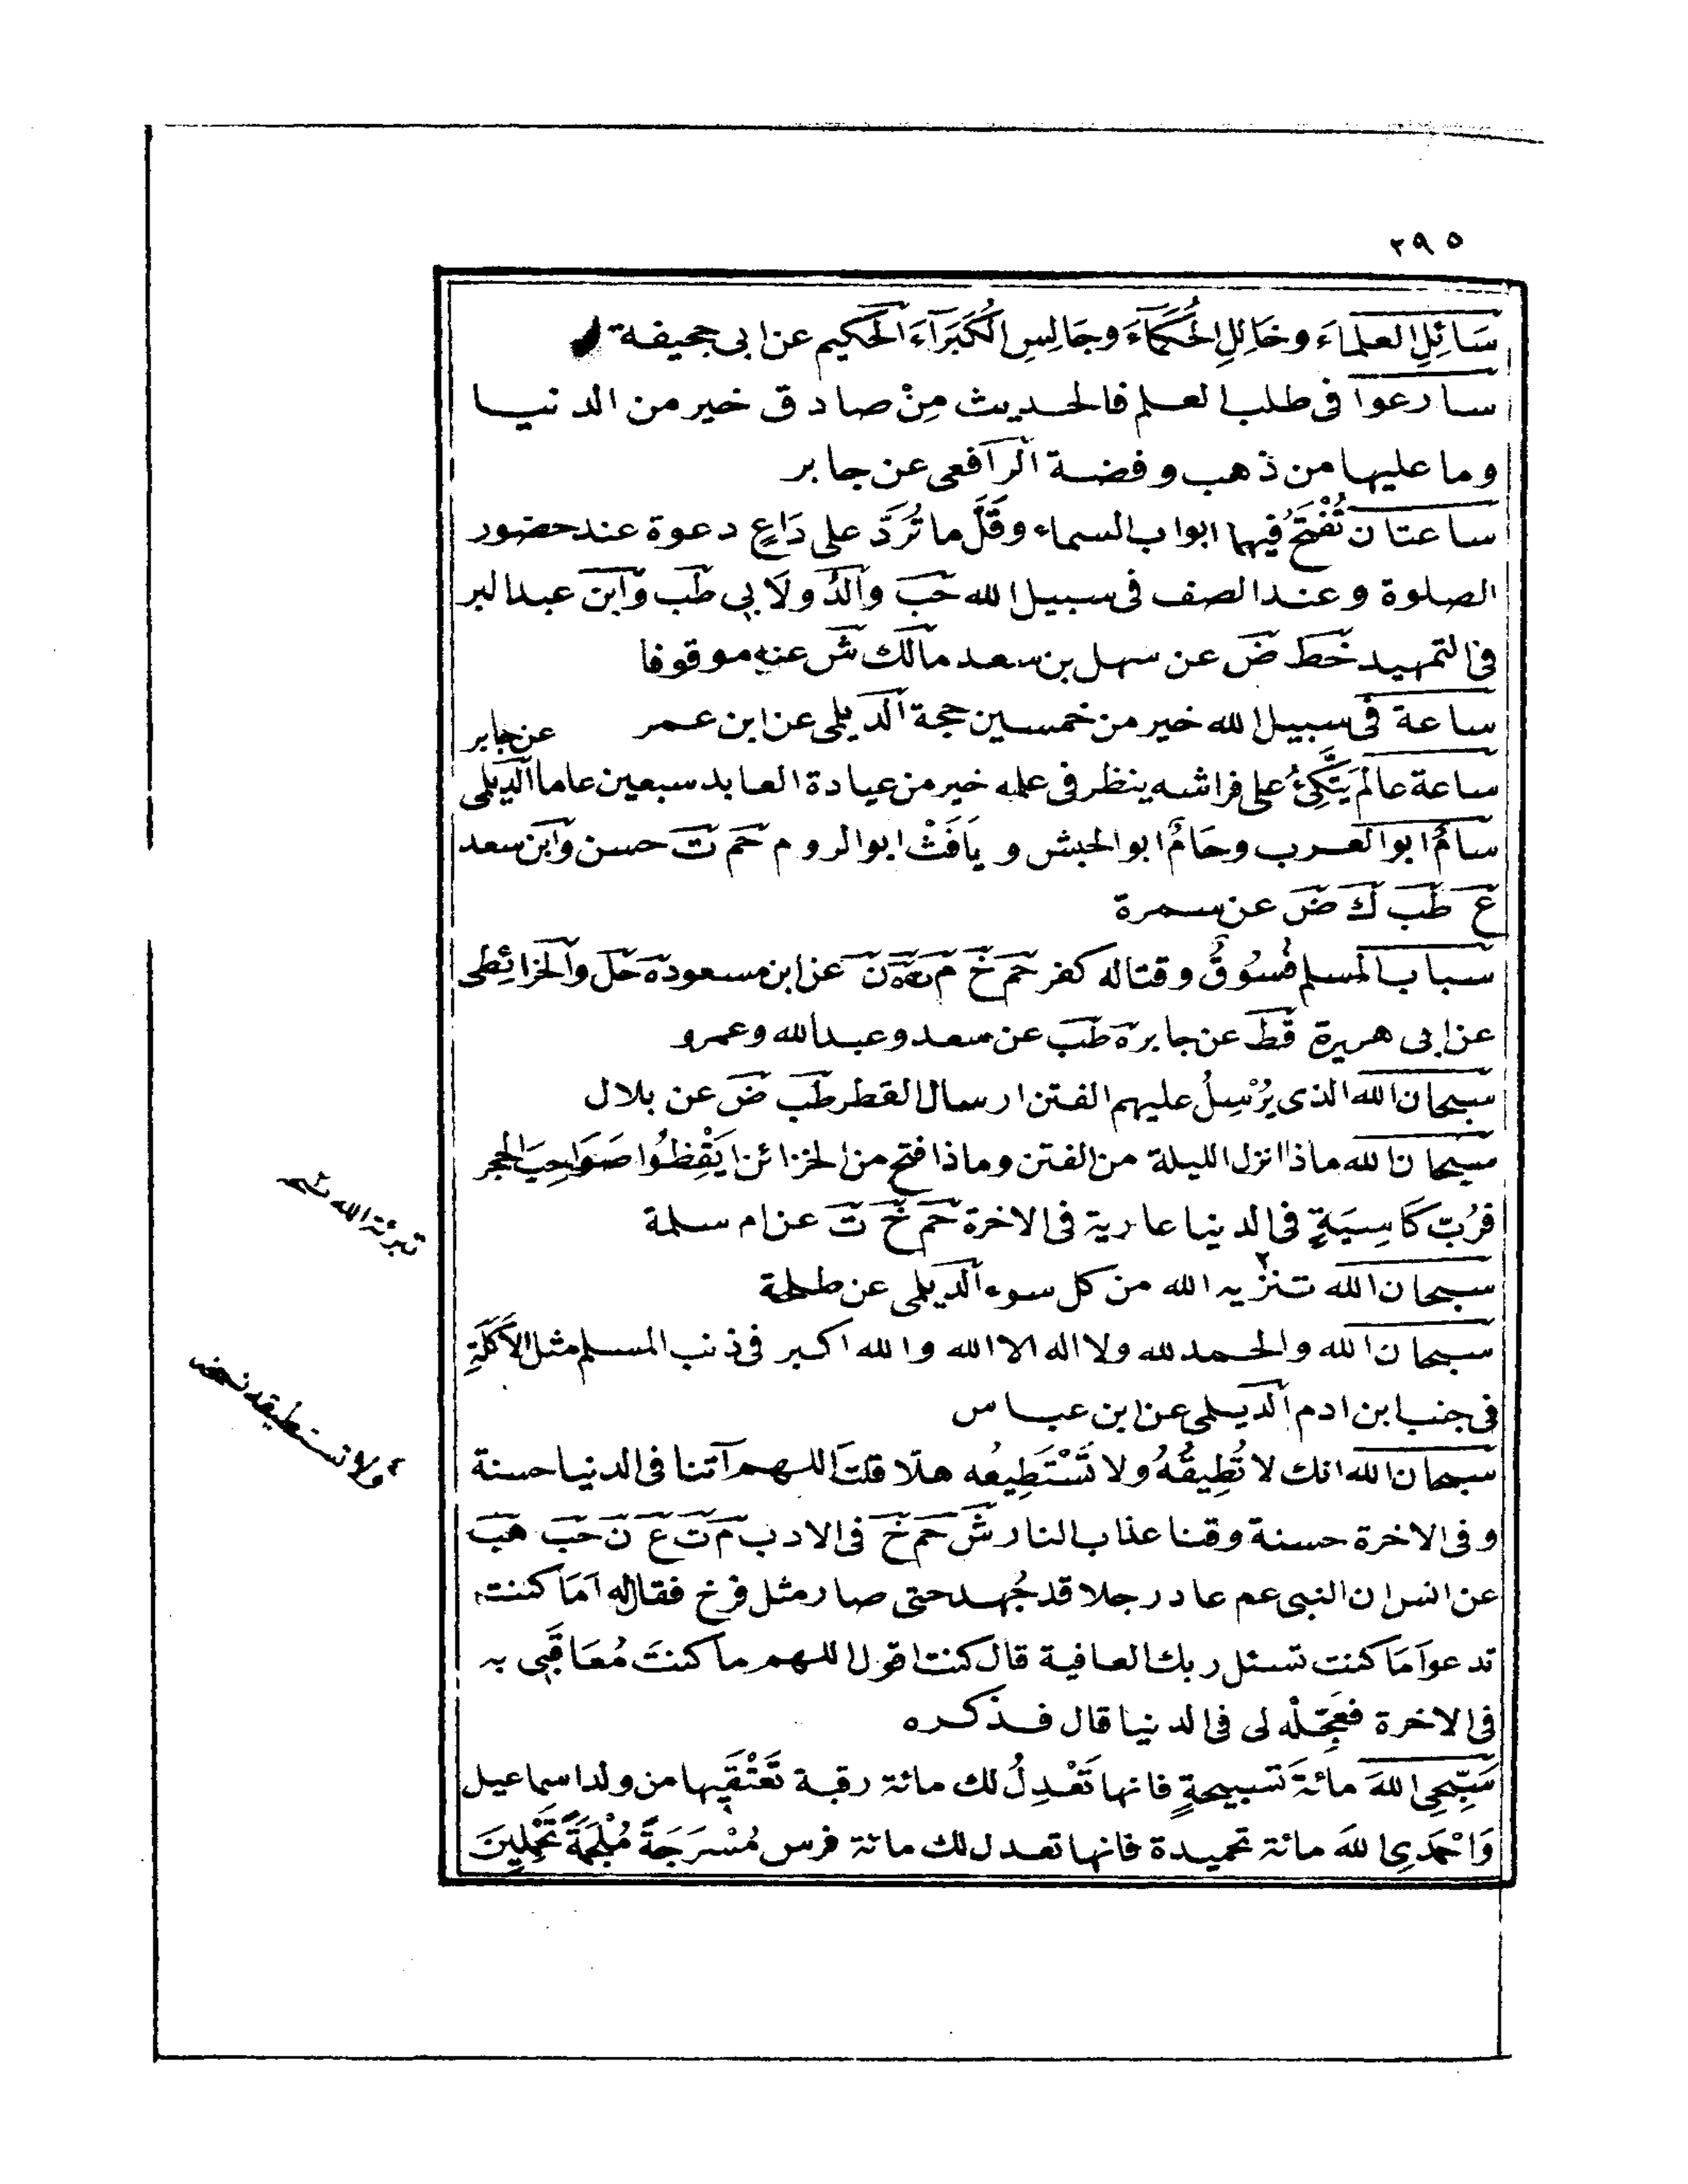 ٢٩٥
سَائِلِ العلماءَ وخَالِلِ الحُكَمَآءَ وجَالِسِ الكُبَرَآءَ الحكيم عن ابى جحيفة
سارعوا فى طلب العلم فالحديث مِنْ صادق خير من الدنيا
وما عليها من ذهب وفضة الرافعى عن جابر
ساعتان تُفْتَحُ فيهما ابواب السماء وقَلَّ ما تُرَدَّ على دَاعٍ دعوة عند حضور
الصلوة وعند الصف فى سبيل الله حب والدولابى طب وابن عبد البر
فى التمهيد خط ض عن سهل بن سعد مالك ش عنه موقوفا
ساعة فى سبيل الله خير من خمسين حجة الديلمى عن ابن عمر
عن جابر
ساعة عالم يَتَّكِئُ على فراشه ينظر فى علمه خير من عبادة العابد سبعين عاما الديلمى
سامُ ابو العرب وحَامُ ابو الحبش و يَافَثْ ابو الروم حم ت حسن وابن سعد
ع طب ك ض عن سمرة
سباب المسلم فُسُوقُ وقتاله كفر حم خ م ت ه ن عن ابن مسعود ه حل والخرائِطى
عن ابى هريرة قط عن جابر ه طب عن سعد وعبد الله وعمرو
سبحان الله الذى يُرْسِلُ عليهم الفتن ارسال القطر طب ض عن بلال
سبحان الله ماذا انزل الليلة من الفتن وماذا فتح من الخزائن ايَقْظُوا صَوَاحِبَ الحجر
فرُبَ كَاسِيَةٍ فى الدنيا عارية فى الاخرة حم خ ت عن ام سلمة
سبحان الله تنزيه الله من كل سوء الديلمى عن طلحة
تبرئة الله نسخه
سبحان الله والحمد لله ولا اله الا الله والله اكبر فى ذنب المسلم مثل الآكَلَةِ
فى جنب ابن ادم الديلمى عن ابن عباس
سبحان الله انك لا تُطِيقُهُ ولا تَسْتَطِيعُه هلّا قلتَ اللهم آتنا فى الدنيا حسنة
ولا تستطيقه نسخه
وفى الاخرة حسنة وقنا عذاب النار ش حم خ فى الادب م ت ع ن حب هب
عن انس ان النبى عم عاد رجلا قد جُهد حتى صار مثل فرخ فقال له اَمَا كنت
تدعو اَمَا كنت تسئل ربك العافية قال كنت اقول اللهم ما كنتَ مُعَاقِبى به
فى الاخرة فعَجِّلْه لى فى الدنيا قال فذكره
سَبِّحِى اللهَ مائةَ تسبيحةٍ فانها تَعْدِلُ لك مائة رقبة تَعْتْقَيِها من ولد اسماعيل
وَاحْمَدِى اللهَ مائة تحميدة فانها تعدل لك مائة فرس مُسْرَجَةً مُلْجَمَةً تَحْمِلِينَ